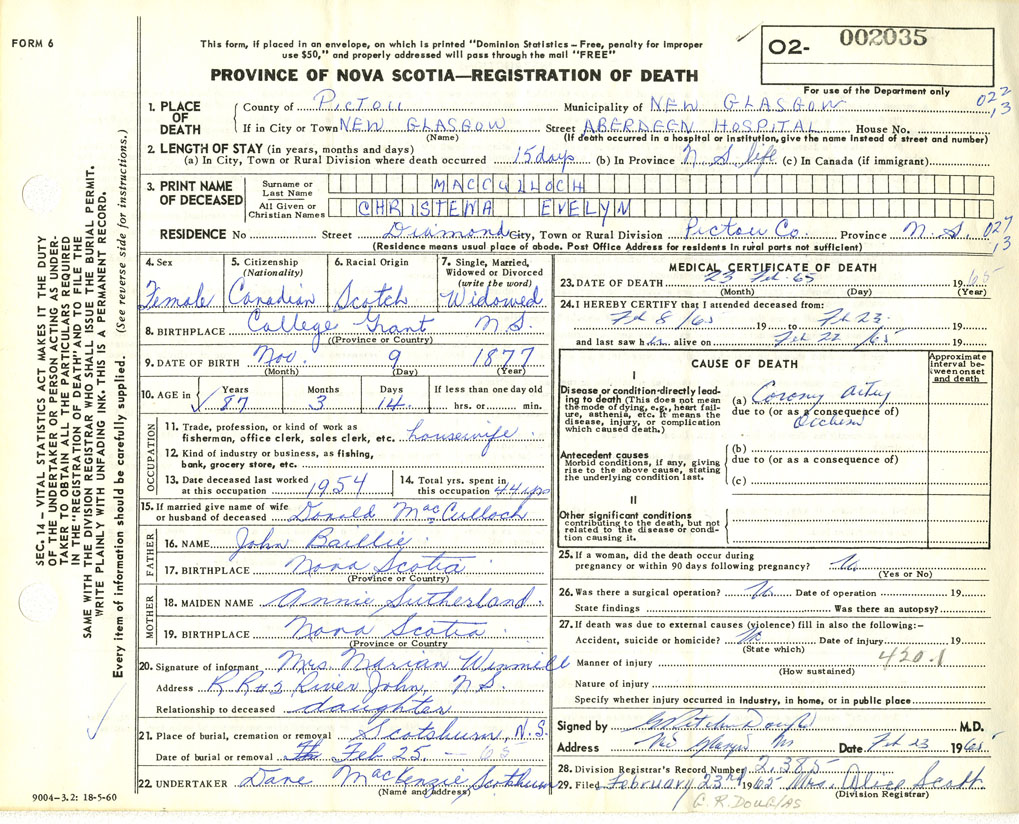 FORM 6
This form, if placed in an envelope, on which is printed "Dominion Statistics – Free, penalty for improper
use $50," and properly addressed will pass through the mail "FREE"
PROVINCE OF NOVA SCOTIA—REGISTRATION OF DEATH
O2- 002035
For use of the Department only
022
13
1. PLACE OF DEATH
County of PICTOU Municipality of NEW GLASGOW
If in City or Town NEW GLASGOW Street ABERDEEN HOSPITAL House No.
(Name) (If death occurred in a hospital or institution, give the name instead of street and number)
2. LENGTH OF STAY (in years, months and days)
(a) In City, Town or Rural Division where death occurred 15 days (b) In Province N S life (c) In Canada (if immigrant)
3. PRINT NAME OF DECEASED
Surname or Last Name MACCULLOCH
All Given or Christian Names CHRISTENA EVELYN
RESIDENCE No Street Diamond City, Town or Rural Division Pictou Co. Province N. S. 027
13
(Residence means usual place of abode. Post Office Address for residents in rural parts not sufficient)
4. Sex Female
5. Citizenship (Nationality) Canadian
6. Racial Origin Scotch
7. Single, Married, Widowed or Divorced (write the word) Widowed
8. BIRTHPLACE College Grant N S.
((Province or Country)
9. DATE OF BIRTH Nov. 9 1877
(Month) (Day) (Year)
10. AGE in Years 87 Months 3 Days 14 If less than one day old hrs. or min.
OCCUPATION
11. Trade, profession, or kind of work as
fisherman, office clerk, sales clerk, etc. housewife
12. Kind of industry or business, as fishing,
bank, grocery store, etc.
13. Date deceased last worked at this occupation 1954
14. Total yrs. spent in this occupation 44 yrs
15. If married give name of wife
or husband of deceased Donald MacCulloch
FATHER
16. NAME John Baillie
17. BIRTHPLACE Nova Scotia
(Province or Country)
MOTHER
18. MAIDEN NAME Annie Sutherland
19. BIRTHPLACE Nova Scotia
(Province or Country
20. Signature of informant Mrs Marian Winmill
Address R R #3 River John, N S.
Relationship to deceased daughter
21. Place of burial, cremation or removal Scotsburn, N.S.
Date of burial or removal Feb 25 – 65
22. UNDERTAKER Dave MacKenzie, Scotsburn
(Name and address)
MEDICAL CERTIFICATE OF DEATH
23. DATE OF DEATH 23 Feb – 65 19 65
(Month) (Day) (Year)
24. I HEREBY CERTIFY that I attended deceased from:
Feb 8 /65 19 to Feb 23 19
and last saw h alive on Feb 22 /65 19
CAUSE OF DEATH
Approximate interval between onset and death
I
Disease or condition directly leading to death (This does not mean the mode of dying, e.g., heart failure, asthenia, etc. It means the disease, injury, or complication which caused death.)
(a) Corony artery
due to (or as a consequence of)
Antecedent causes
Morbid conditions, if any, giving rise to the above cause, stating the underlying condition last.
(b)
due to (or as a consequence of)
(c)
II
Other significant conditions
contributing to the death, but not related to the disease or condition causing it.
25. If a woman, did the death occur during
pregnancy or within 90 days following pregnancy? No
(Yes or No)
26. Was there a surgical operation? No Date of operation 19
State findings Was there an autopsy?
27. If death was due to external causes (violence) fill in also the following:–
Accident, suicide or homicide? No Date of injury 19
(State which) 420.1
Manner of injury
(How sustained)
Nature of injury
Specify whether injury occurred in industry, in home, or in public place
Signed by M.D.
Address New Glasgow NS Date Feb 23 1965
28. Division Registrar's Record Number 2,385
29. Filed February 23rd 1965 Mrs. Alice Scott
(Division Registrar)
G. R. DOUGLAS
SEC. 14 – VITAL STATISTICS ACT MAKES IT THE DUTY
OF THE UNDERTAKER OR PERSON ACTING AS UNDER-
TAKER TO OBTAIN ALL THE PARTICULARS REQUIRED
IN THE "REGISTRATION OF DEATH" AND TO FILE THE
SAME WITH THE DIVISION REGISTRAR WHO SHALL ISSUE THE BURIAL PERMIT.
WRITE PLAINLY WITH UNFADING INK. THIS IS A PERMANENT RECORD.
Every item of information should be carefully supplied. (See reverse side for instructions.)
9004–3.2: 18-5-60